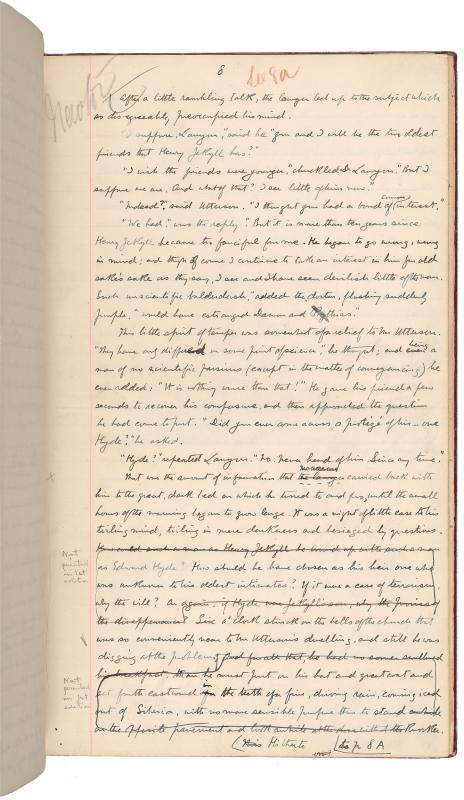 8
See 8a
After a little rambling talk, the lawyer led up to the subject which
so disagreeably preoccupied his mind.
"I suppose, Lanyon," said he "you and I will be the two oldest
friends that Henry Jekyll has?"
"I wish the friends were younger," chuckled Dr Lanyon. "But I
suppose we are. And what of that? I see little of him now."
"Indeed?," said Utterson. "I thought you had a bond of common interest."
"We had," was the reply. "But it is more than ten years since
Henry Jekyll became too fanciful for me. He began to go wrong, wrong
in mind; and though of course I continue to take an interest in him for old
sake's sake as they say, I see and I have seen devilish little of the man.
Such unscientific balderdash," added the doctor, flushing suddenly
purple, "would have estranged Damon and Pythias."
This little spirit of temper was somewhat of a relief to Mr Utterson.
"They have only differed on some point of science," he thought; and being a
man of no scientific passions (except in the matter of conveyancing) he
even added: "It is nothing worse than that!" He gave his friend a few
seconds to recover his composure, and then approached the question
he had come to put. "Did you ever come across a protégé of his – one
Hyde?," he asked.
"Hyde?" repeated Lanyon. "No. Never heard of him. Since my time."
That was the amount of information that the lawyer carried back with
him to the great, dark bed on which he tossed to and fro, until the small
hours of the morning began to grow large. It was a night of little ease to his
toiling mind, toiling in mere darkness and besieged by questions.
Not
printed
in 1st
edition
as Edward Hyde? How should he have chosen as his heir one who
was unknown to his oldest intimates? If it was a case of terrorism
why the will? Or again, if Hyde was Jekyll's son, why the proviso of
the disappearance? Six o'clock struck on the bells of the church that
was so conveniently near to Mr Utterson's dwelling, and still he was
digging at the problem;
Not
printed
in 1st
edition
he must put on his hat and great coat and
set forth eastward in the teeth of a fine, driving rain, coming iced
out of Siberia, with no more sensible purpose than to stand outside
Hitherto
to p 8A